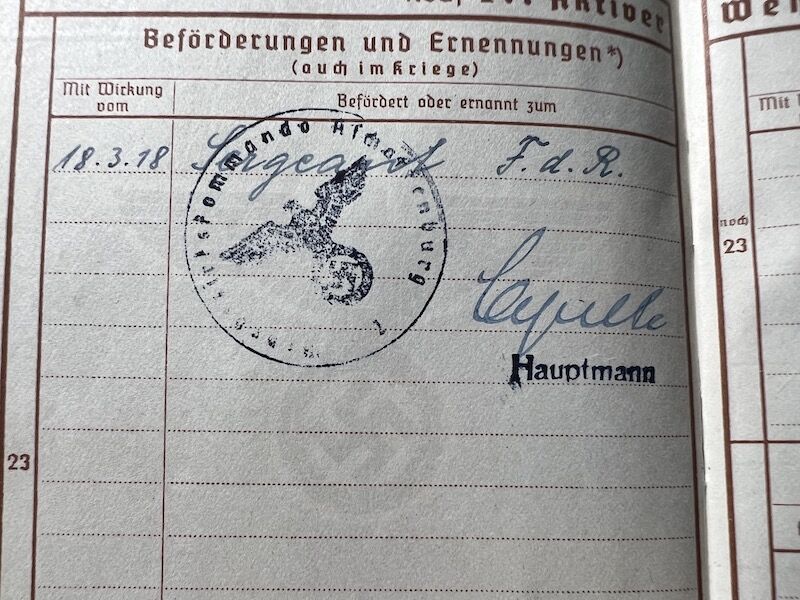 Aktiver
Beförderungen und Ernennungen*)
(auch im Kriege)
Mit Wirkung
vom
Befördert oder ernannt zum
18.3.18 Sergeant F. d. R.
Hauptmann
23
We
Mit
noch
23